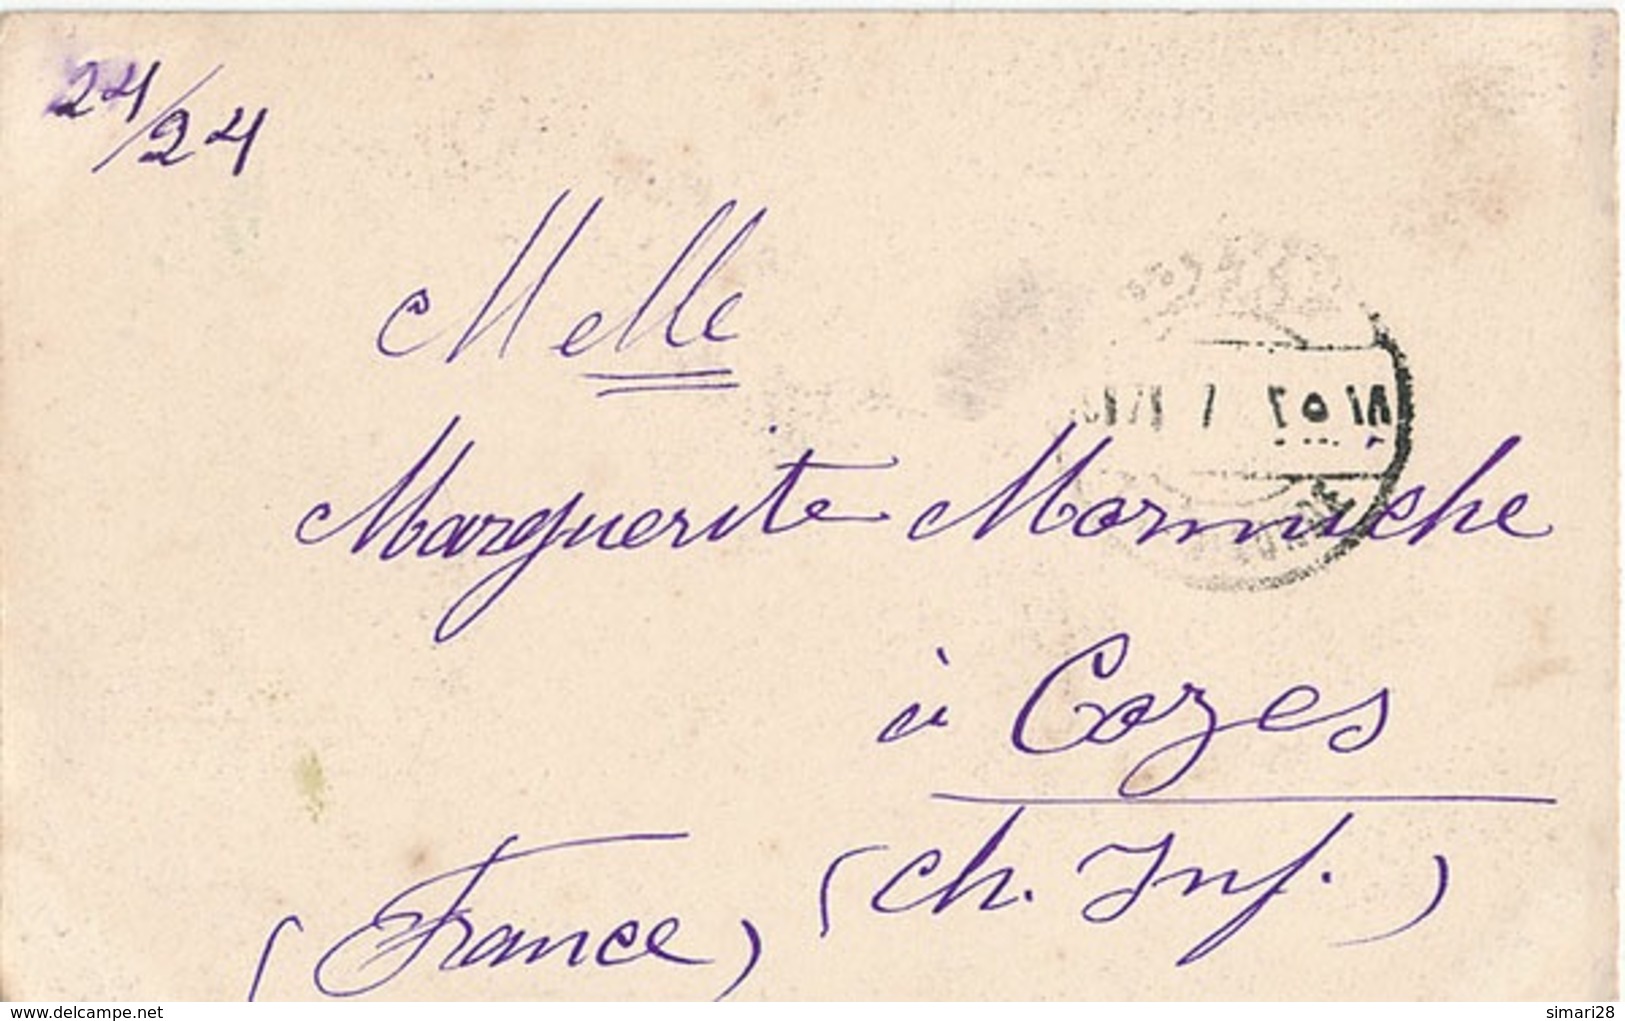 24/24
Melle
Marguerite Mormiche
à Cozes
(Ch. Inf.)
(France)
www.delcampe.net
simari28